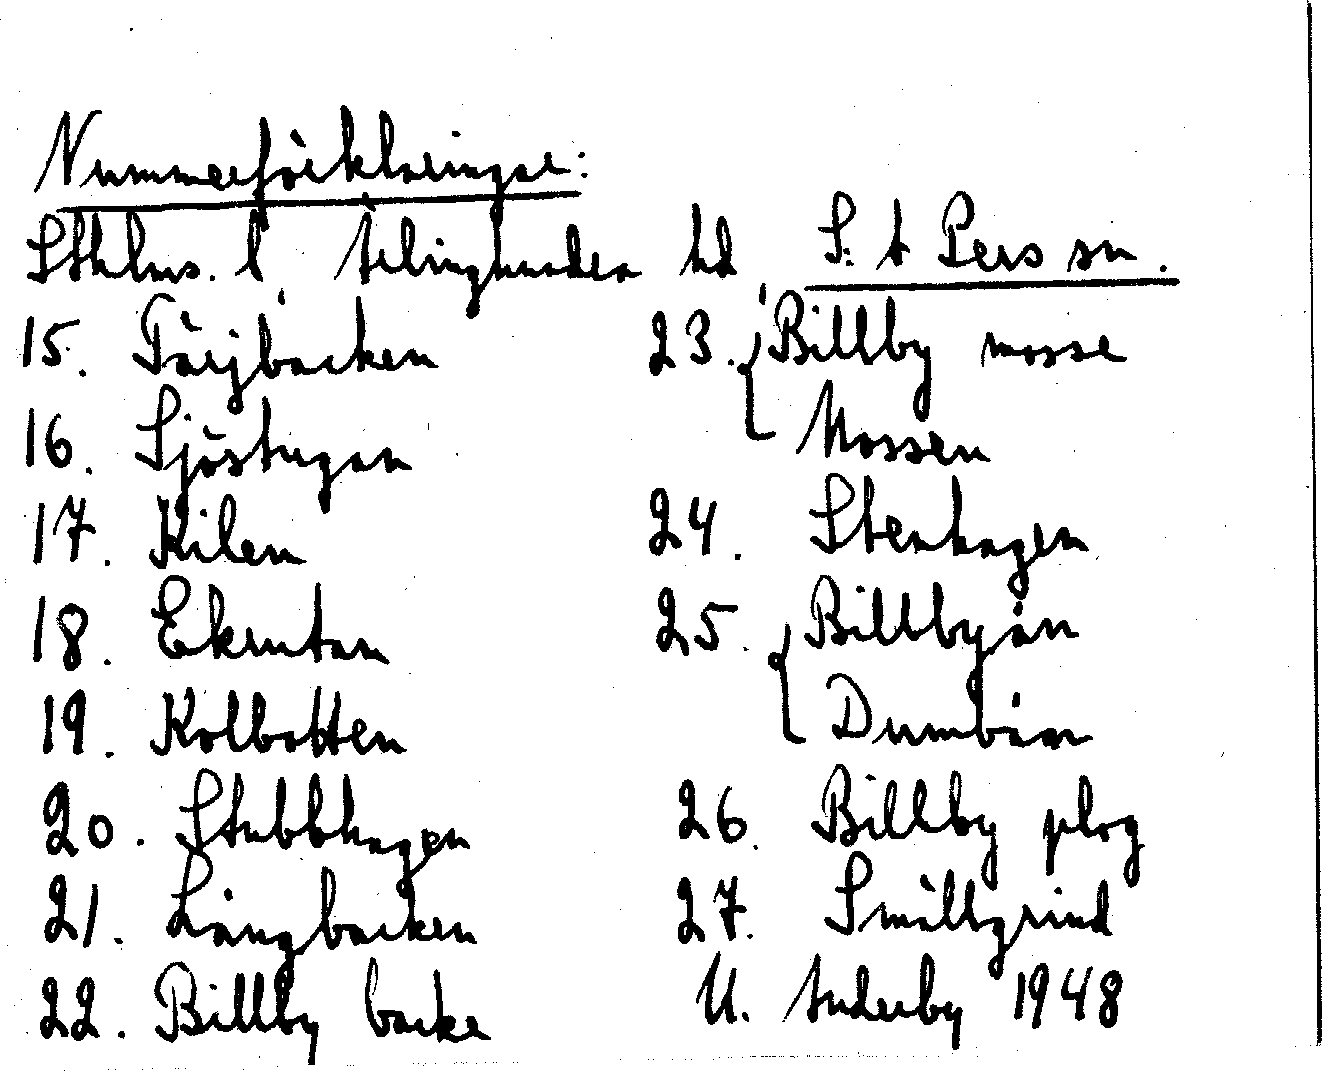 Nummerförklaringar:
Sthlms. l Ärlinghundra hd S:t Persn sn.
15. Färjbacken
16. Sjöstugan
17. Kilen
18. Ekrutan
19. Kolbotten
20. Stubbhagen
21. Långbacken
22. Billby backe
23. Billby mosse
Mossen
24. Stenhagen
25. Billbyån
Dumbäan
26. Billby plog
27. Smällgrind
U. Anderby 1948